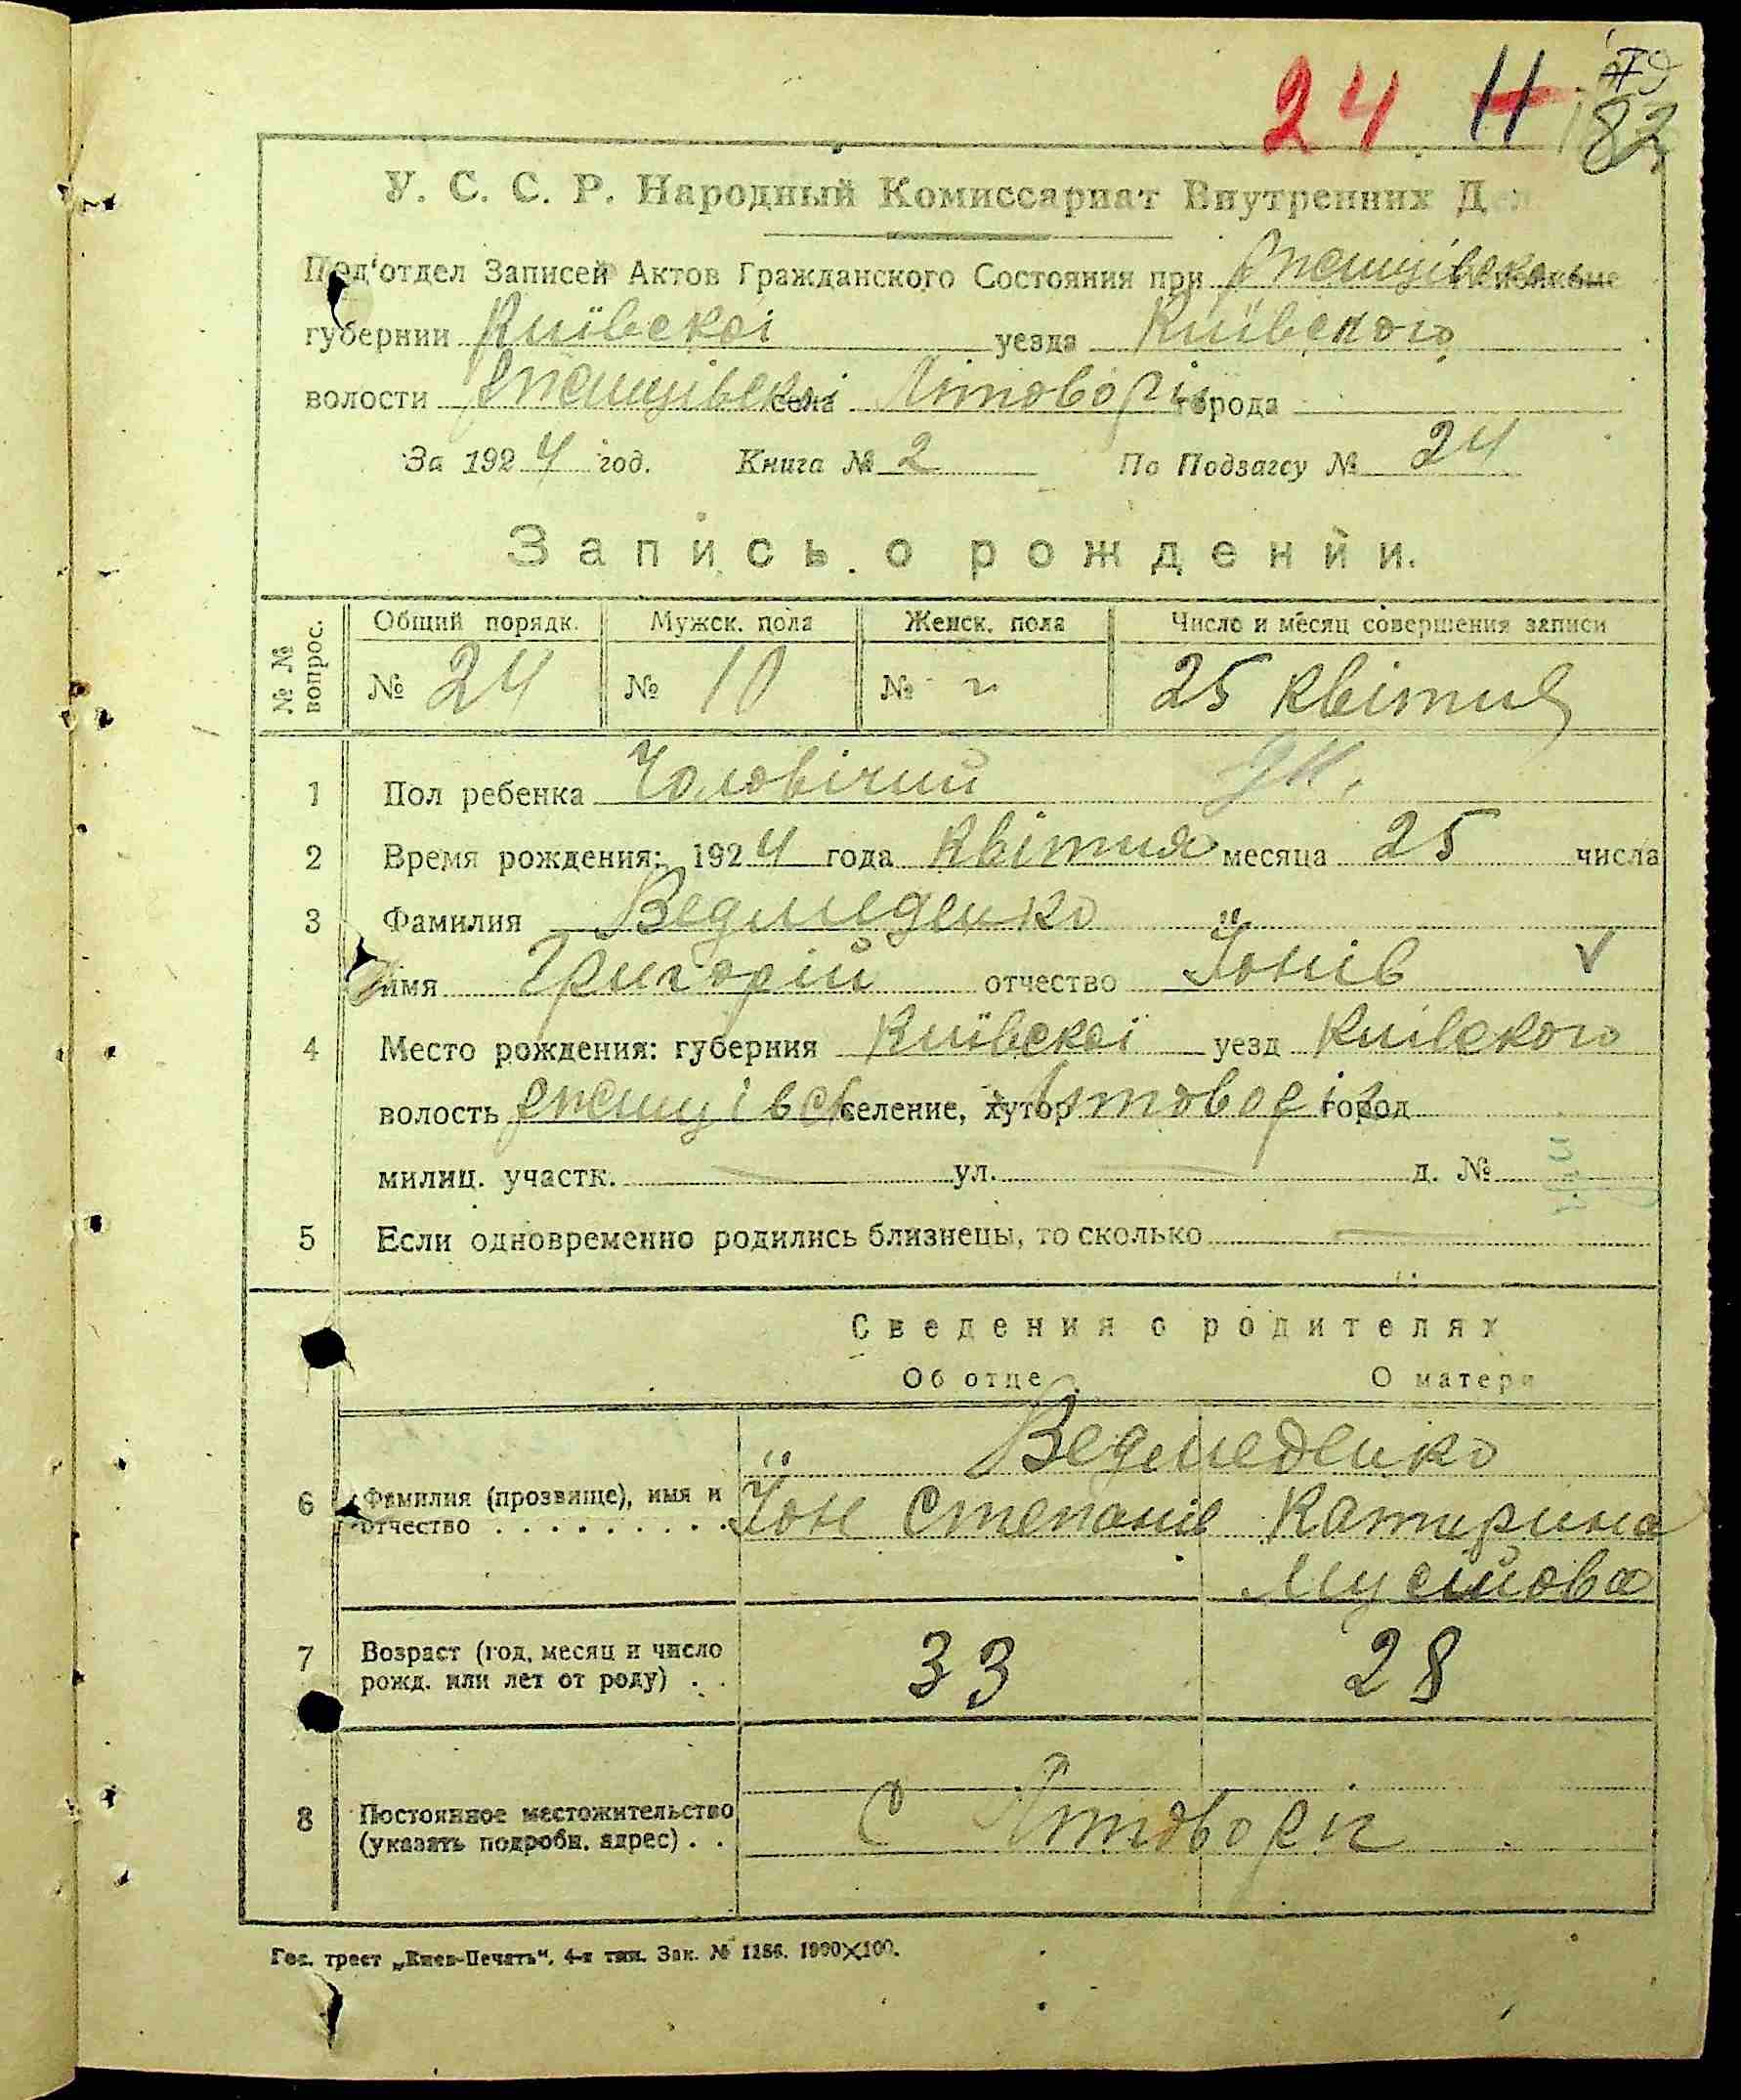 24 11
182
У. С. С. Р. Народный Комиссариат Внутренних Дел
Под'отдел Записей Актов Гражданского Состояния при
губернии Київскої уезда Київського
волости села Літоворіг города
За 1924 год. Книга № 2 По Подзагсу № 24
Запись о рождении.
№ № вопрос. Общий порядк. Мужск. пола Женск. пола Число и месяц совершения записи
№ 24 № 10 № 25 квітня
1 Пол ребенка Чоловічий
2 Время рождения: 1924 года квітня месяца 25 числа
3 Фамилия Ведмеденко
Имя Григорій отчество Йонів
4 Место рождения: губерния Київскої уезд Київского
волость селение, хутор город
милиц. участк. ул. д. №
5 Если одновременно родились близнецы, то сколько
Сведения о родителях
Об отце О матери
Ведмеденко
6 Фамилия (прозвище), имя и
отчество Йон Степанів Катерина
Мусійова
7 Возраст (год, месяц и число
рожд. или лет от роду) 33 28
8 Постоянное местожительство
(указать подробн. адрес) С
Гос. трест „Киев-Печать“, 4-я тип. Зак. № 1286. 1000×100.